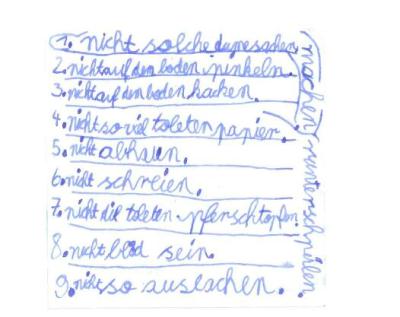 1. nicht solche dumesachen machen
2. nicht auf den boden pinkeln.
3. nicht auf den boden kacken.
4. nicht so vil toletenpapier runterschpülen.
5. nicht abhaun.
6. nicht schreien.
7. nicht die toleten ferschtopfen
8. nicht blöd sein.
9. nicht so auslachen.